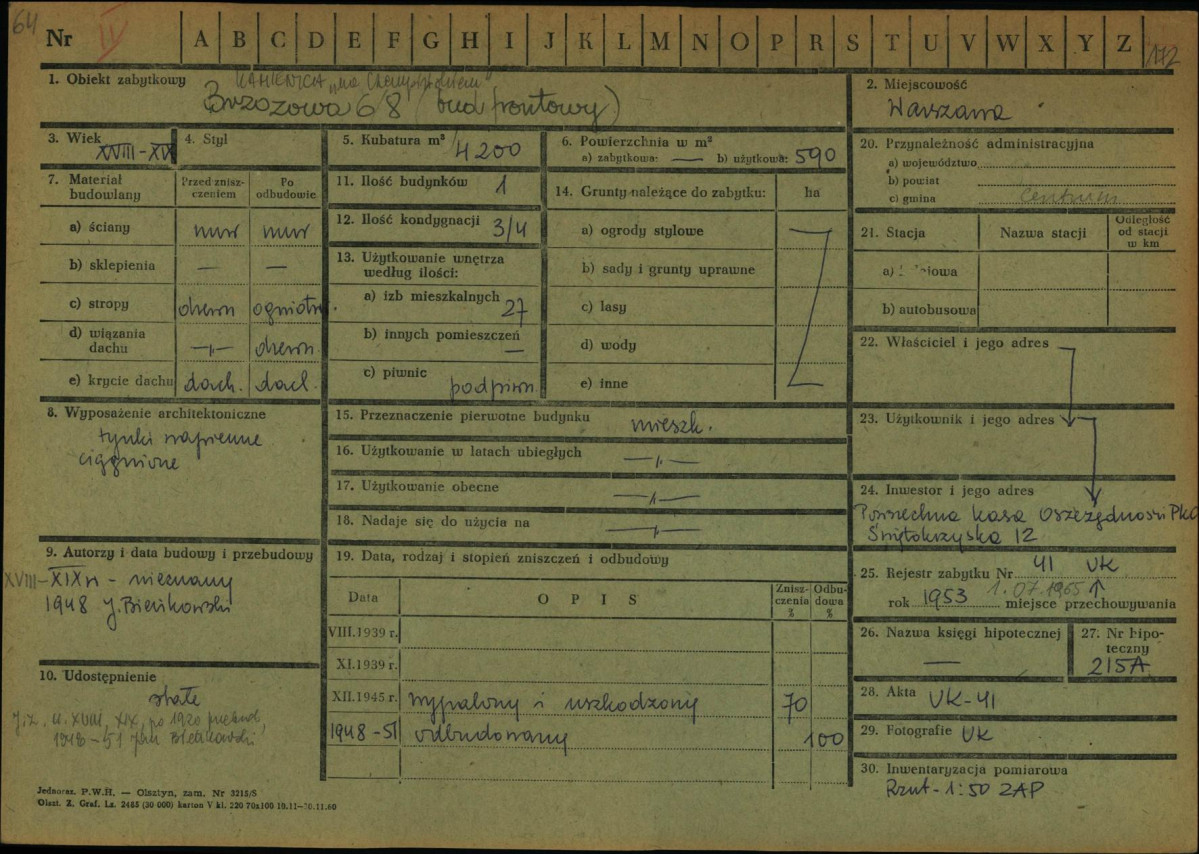 64
Nr II A B C D E F G H I J K L M N O P R S T U V W X Y Z 172
1. Obiekt zabytkowy KAMIENICA
Brzozowa 6/8 (bud frontowy)
2. Miejscowość
Warszawa
3. Wiek XVIII-XIX
4. Styl
5. Kubatura m³ 4200
6. Powierzchnia w m²
a) zabytkowa: — b) użytkowa: 590
20. Przynależność administracyjna
a) województwo
b) powiat
c) gmina Centrum
7. Materiał budowlany
Przed znisz-
czeniem
Po
odbudowie
a) ściany mur mur
b) sklepienia — —
c) stropy drewn ogniotr.
d) wiązania
dachu —„— drewn.
e) krycie dachu dach. dach.
11. Ilość budynków 1
12. Ilość kondygnacji 3/4
13. Użytkowanie wnętrza
według ilości:
a) izb mieszkalnych 27
b) innych pomieszczeń —
c) piwnic podpiwn.
14. Grunty należące do zabytku: ha
a) ogrody stylowe
b) sady i grunty uprawne
c) lasy
d) wody
e) inne
21. Stacja
Nazwa stacji
Odległość
od stacji
w km
b) autobusowa
22. Właściciel i jego adres
23. Użytkownik i jego adres
24. Inwestor i jego adres
Powszechna Kasa Oszczędności PKO
Świętokrzyska 12
8. Wyposażenie architektoniczne
tynki wapienne
ciągnione
15. Przeznaczenie pierwotne budynku mieszk.
16. Użytkowanie w latach ubiegłych —„—
17. Użytkowanie obecne —„—
18. Nadaje się do użycia na —„—
9. Autorzy i data budowy i przebudowy
XVIII-XIX w - nieznany
1948 J. Bieńkowski
19. Data, rodzaj i stopień zniszczeń i odbudowy
Data
OPIS
Znisz-
czenia
%
Odbu-
dowa
%
VIII.1939 r.
XI.1939 r.
XII.1945 r. wypalony i uszkodzony 70
1948-51 odbudowany 100
25. Rejestr zabytku Nr 41 UK
1.07.1965
rok 1953 miejsce przechowywania
26. Nazwa księgi hipotecznej
—
27. Nr hipo-
teczny
215A
28. Akta UK-41
29. Fotografie UK
30. Inwentaryzacja pomiarowa
Rzut - 1:50 ZAP
10. Udostępnienie
stałe
XVIII, XIX, po 1920
1948-51 Jan Bieńkowski
Jednoraz. P.W.H. — Olsztyn, zam. Nr 3215/S
Olszt. Z. Graf. Lz. 2465 (30 000) karton V kl. 220 70x100 18.11-30.11.60